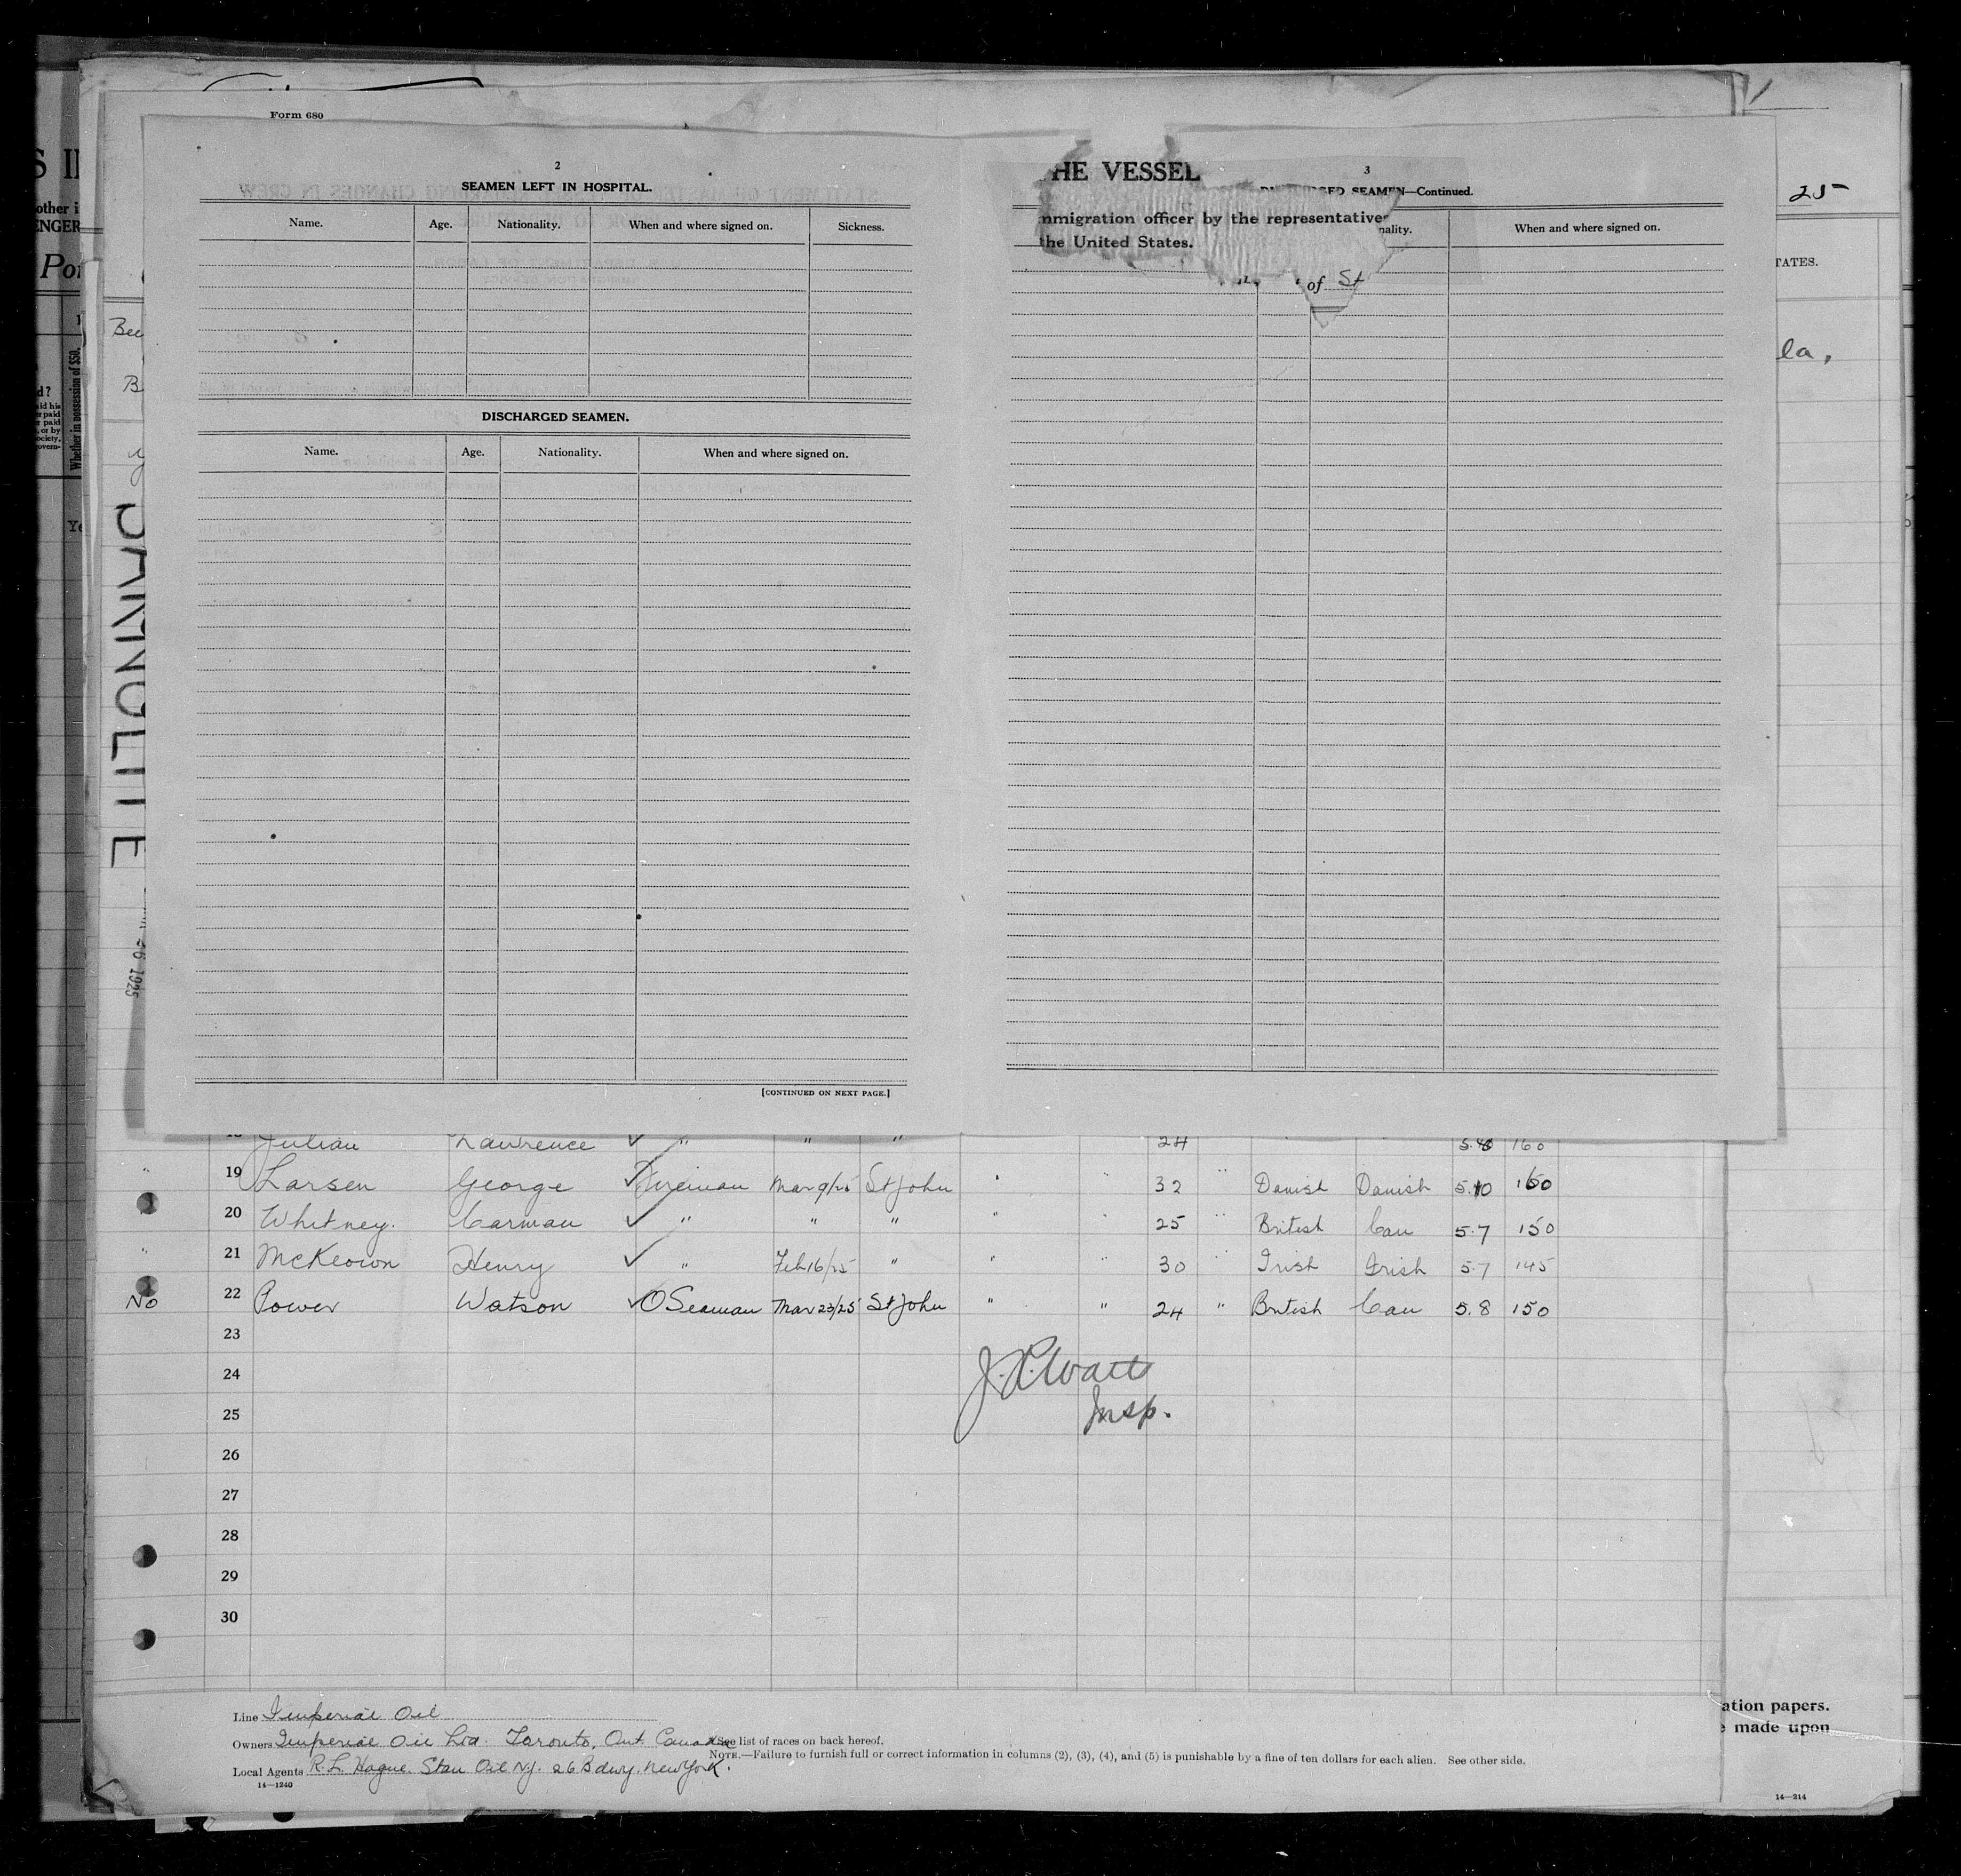 Form 680
2
SEAMEN LEFT IN HOSPITAL.
Name. Age. Nationality. When and where signed on. Sickness.
DISCHARGED SEAMEN.
Name. Age. Nationality. When and where signed on.
[CONTINUED ON NEXT PAGE.]
HE VESSEL
3
SEAMEN—Continued.
mmigration officer by the representatives
the United States.
of St
nality. When and where signed on.
25
TATES.
la,
S I
other i
ENGER
Por
d?
aid his
er paid
r paid
, or by
ociety,
overn-
Whether in possession of $50.
Ye
Bee
B
y
DANNOLITE
26 1925
Julian Lawrence ✓ " " " 24 160
19 Larsen George ✓ Fireman Mar 9/25 St John " " 32 " Danish Danish 5.10 160
20 Whitney. Carman ✓ " " " " " 25 " British Can 5.7 150
21 McKeown Henry ✓ " Feb 16/25 " " " 30 " Irish Irish 5.7 145
No 22 Power Watson ✓ O Seaman Mar 23/25 St John " " 24 " British Can 5.8 150
23
24
25
Insp.
26
27
28
29
30
Line Imperial Oil
Owners Imperial Oil Ltd. Toronto, Ont. Canada
See list of races on back hereof.
NOTE.—Failure to furnish full or correct information in columns (2), (3), (4), and (5) is punishable by a fine of ten dollars for each alien. See other side.
Local Agents R.L. Hague. Stan Oil N.J. 26 Bdwy. New York.
14—1240
ation papers.
e made upon
14—214